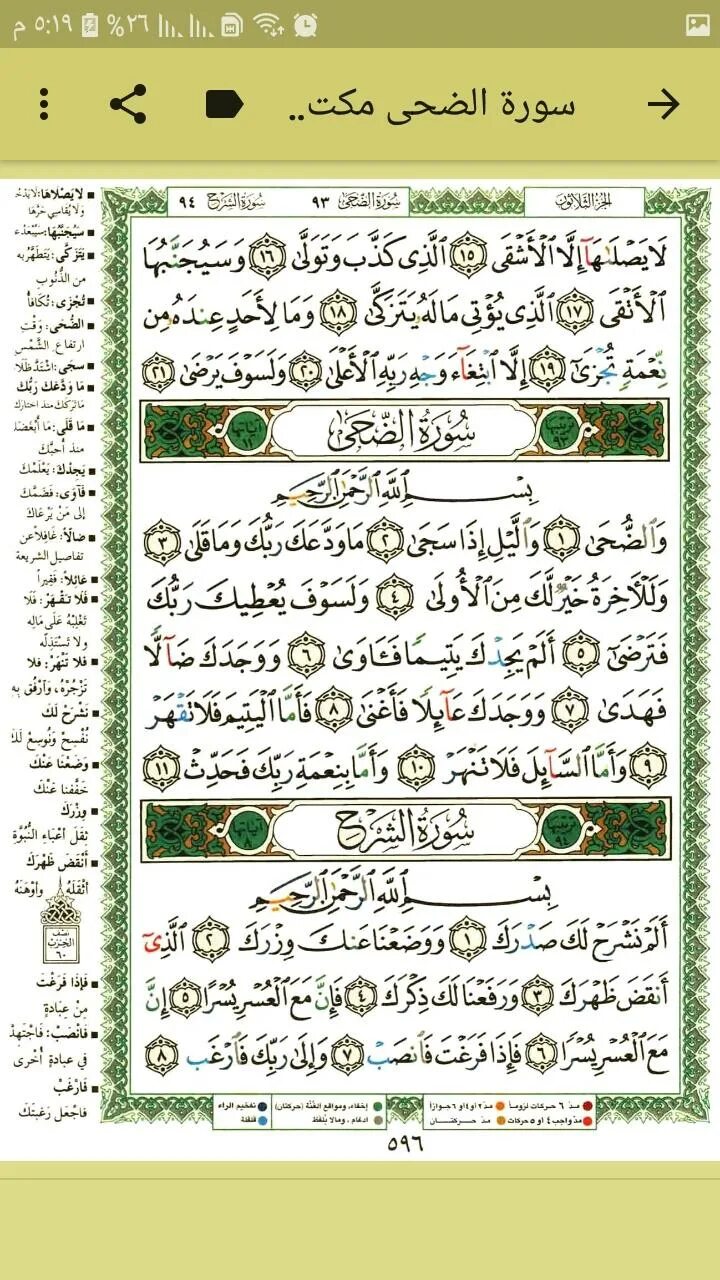 ٥:١٩ م ٢٦%
سورة الضحى مكت..
الجزء الثلاثون
سورة الضحى ٩٣
سورة الشرح ٩٤
لَا يَصْلَىٰهَآ إِلَّا ٱلْأَشْقَى ١٥ ٱلَّذِى كَذَّبَ وَتَوَلَّىٰ ١٦ وَسَيُجَنَّبُهَا
ٱلْأَتْقَى ١٧ ٱلَّذِى يُؤْتِى مَالَهُۥ يَتَزَكَّىٰ ١٨ وَمَا لِأَحَدٍ عِندَهُۥ مِن
نِّعْمَةٍ تُجْزَىٰٓ ١٩ إِلَّا ٱبْتِغَآءَ وَجْهِ رَبِّهِ ٱلْأَعْلَىٰ ٢٠ وَلَسَوْفَ يَرْضَىٰ ٢١
ترتيبها ٩٣ سُورَةُ الضُّحَىٰ آياتها ١١
بِسْمِ ٱللَّهِ ٱلرَّحْمَٰنِ ٱلرَّحِيمِ
وَٱلضُّحَىٰ ١ وَٱلَّيْلِ إِذَا سَجَىٰ ٢ مَا وَدَّعَكَ رَبُّكَ وَمَا قَلَىٰ ٣
وَلَلْءَاخِرَةُ خَيْرٌ لَّكَ مِنَ ٱلْأُولَىٰ ٤ وَلَسَوْفَ يُعْطِيكَ رَبُّكَ
فَتَرْضَىٰٓ ٥ أَلَمْ يَجِدْكَ يَتِيمًا فَـَٔاوَىٰ ٦ وَوَجَدَكَ ضَآلًّا
فَهَدَىٰ ٧ وَوَجَدَكَ عَآئِلًا فَأَغْنَىٰ ٨ فَأَمَّا ٱلْيَتِيمَ فَلَا تَقْهَرْ
٩ وَأَمَّا ٱلسَّآئِلَ فَلَا تَنْهَرْ ١٠ وَأَمَّا بِنِعْمَةِ رَبِّكَ فَحَدِّثْ ١١
ترتيبها ٩٤ سُورَةُ الشَّرْحِ آياتها ٨
بِسْمِ ٱللَّهِ ٱلرَّحْمَٰنِ ٱلرَّحِيمِ
أَلَمْ نَشْرَحْ لَكَ صَدْرَكَ ١ وَوَضَعْنَا عَنكَ وِزْرَكَ ٢ ٱلَّذِىٓ
أَنقَضَ ظَهْرَكَ ٣ وَرَفَعْنَا لَكَ ذِكْرَكَ ٤ فَإِنَّ مَعَ ٱلْعُسْرِ يُسْرًا ٥ إِنَّ
مَعَ ٱلْعُسْرِ يُسْرًا ٦ فَإِذَا فَرَغْتَ فَٱنصَبْ ٧ وَإِلَىٰ رَبِّكَ فَٱرْغَب ٨
لا يَصْلاها: لا يَدخُ
ولا يُقاسي حَرَّها
سَيُجَنَّبُهَا: سَيُبْعَدُ ع
يَتَزَكَّى: يَتَطَهَّرُ به
من الذُّنوبِ
تُجْزَى: تُكَافَأُ
الضُّحَى: وَقْتِ
ارتفاعِ الشَّمْسِ
سَجَى: اشْتَدَّ ظَلا
مَا وَدَّعَكَ رَبُّكَ
ما تركك منذ اختارك
مَا قَلَى: مَا أَبْغَضَكَ
منذ أحبَّكَ
يَجِدْكَ: يَعْلَمْكَ
فَآوَى: فَضَمَّكَ
إلى مَنْ يَرعاكَ
ضَالّاً: غَافِلاً عن
تفاصيلِ الشريعة
عَائِلاً: فَقيراً
فَلَا تَقْهَرْ: فَلَا
تَغْلِبْهُ عَلَى مَالِهِ
ولا تَسْتَذِلَّه
فَلَا تَنْهَرْ: فلا
تَزْجُرْهُ، وَارْفُقْ بِهِ
نَشْرَحْ لَكَ
نُفْسِحْ وَنُوَسِعْ لَكَ
وَضَعْنَا عَنْكَ
خَفَّفْنَا عَنْكَ
وِزْرَكَ
ثِقَلَ أَعْبَاءِ النُّبُوَّةِ
أَنْقَضَ ظَهْرَكَ
أَثْقَلَهُ وأوْهَنَهُ
نصف
الحزب
٦٠
فَإِذَا فَرَغْتَ
مِنْ عِبَادَةٍ
فَانْصَبْ: فَاجْتَهِدْ
في عبادةٍ أُخْرى
فَارْغَبْ
فَاجْعَلْ رَغبتَكَ
مدّ ٦ حركات لزوماً مدّ ٢ او ٤ او ٦ جوازاً
مدّ واجب ٤ او ٥ حركات مدّ حركتان
إخفاء، ومواقع الغُنَّة (حركتان)
ادغام، ومالا يُلفظ
تفخيم الراء
قلقلة
٥٩٦